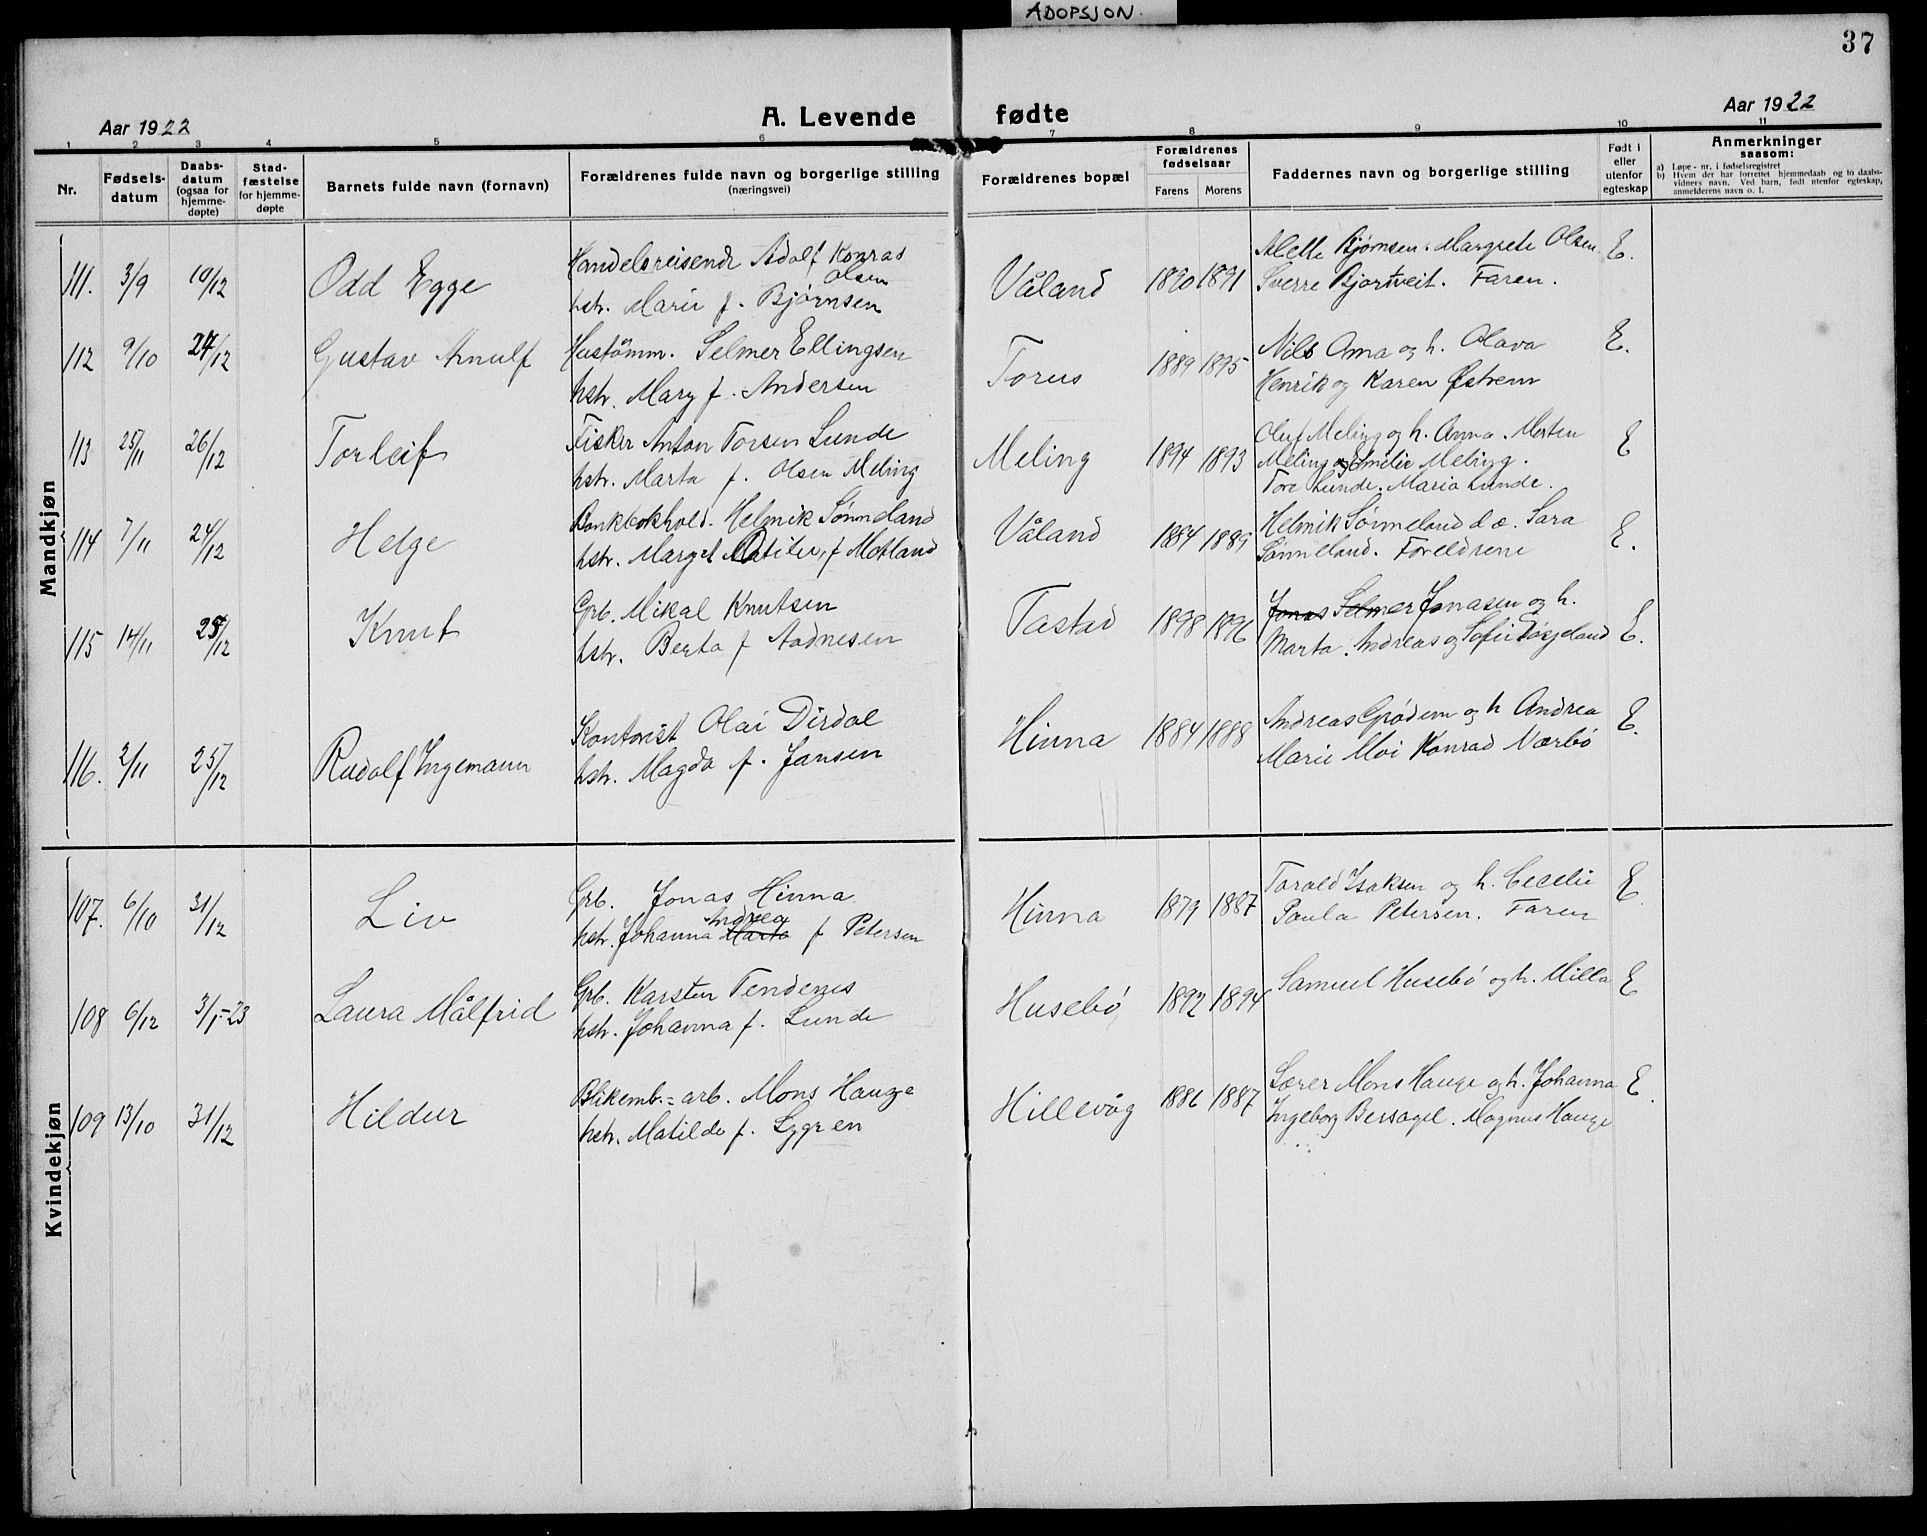 ADOPSJON.
37
Aar 1922
A. Levende fødte
Aar 1922
1 2 3 4 5 6 7 8 9 10 11
Nr.
Fødsels-
datum
Daabs-
datum
(ogsaa for
hjemme-
døpte)
Stad-
fæstelse
for hjemme-
døpte
Barnets fulde navn (fornavn)
Forældrenes fulde navn og borgerlige stilling
(næringsvei)
Forældrenes bopæl
Forældrenes
fødselsaar
Farens Morens
Faddernes navn og borgerlige stilling
Født i
eller
utenfor
egteskap
Anmerkninger
saasom:
a) Løpe-nr. i fødselsregistret
b) Hvem der har forrettet hjemmedaab og to daabs-
vidners navn. Ved barn, født utenfor egteskap,
anmelderens navn o. l.
Mandkjøn
111. 3/9 10/12 Odd Egge
Handelsreisende Adolf Konrad
Olsen
hstr. Marie f. Bjørnsen
Våland 1890 1891
Alette Bjørnsen. Margrete Olsen.
Sverre Bjortveit. Faren.
E.
112 9/10 24/12 Gustav Arnulf
Hustømm. Selmer Ellingsen
hstr. Mary f. Andersen
Torus 1889 1895
Nils Ama og h. Olava
Henrik og Karen Østrem
E.
113 25/11 26/12 Torleif
Fisker Anton Torsen Lunde
hstr. Marta f. Olsen Meling
Meling 1894 1893
Oluf Meling og h. Anna. Morten
Meling og Emelie Meling.
Tore Lunde. Maria Lunde.
E
114 7/11 24/12 Helge
Bankbokhold. Helmik Sømmeland
hstr. Marget Matilde, f Motland
Våland 1884 1889
Helmik Sømmeland d. æ. Sara
Sømmeland. Foreldrene
E.
115 14/11 25/12 Knut
Grb. Mikal Knutsen
hstr. Berta f Aadnesen
Tastad 1898 1896
Jonas Selmer Jonasen og h.
Marta. Andreas og Sofie Tøgjeland
E.
116. 2/11 25/12 Rudolf Ingemann
Kontorist Olai Dirdal
hstr. Magda f. Jansen
Hinna 1884 1888
Andreas Grødem og h Andrea
Marie Moi Konrad Nærbø
E.
Kvindekjøn
107. 6/10 31/12 Liv
Grb. Jonas Hinna
Andrea
hstr. Johanna Marta f Petersen
Hinna 1879 1887
Torald Isaksen og h. Cecelie
Paula Petersen. Faren
E.
108 6/12 3/1-23 Laura Målfrid
Grb. Karsten Tendenes
hstr. Johanna f. Lunde
Husebø 1892 1894
Samuel Husebø og h. Milla
E
109 13/10 31/12 Hildur
Blikemb.=arb. Mons Hauge
hstr. Matilde f. Lygren
Hillevåg 1886 1887
Lærer Mons Hauge og h. Johanna
Ingeborg Bersagel. Magnus Hauge
E.